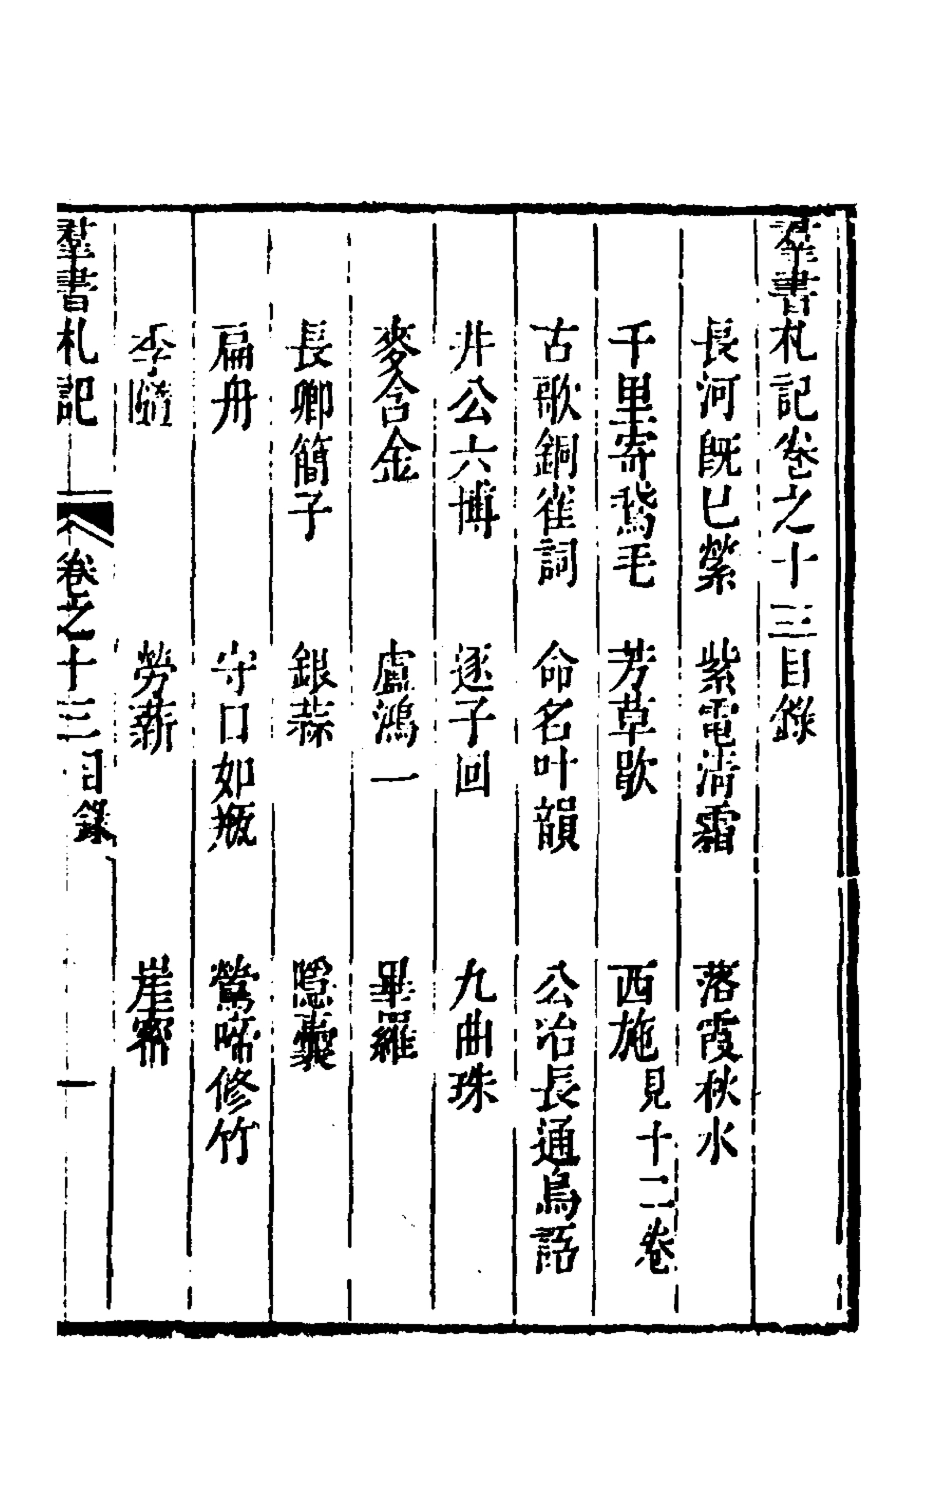 羣書札記卷之十三目錄
長河旣已縈　紫電淸霜　落霞秋水
千里寄鵞毛　芳草歇　西施見十二卷
古歌銅雀詞　命名叶韻　公冶長通鳥語
井公六博　逐子回　九曲珠
麥含金　盧鴻一　畢羅
長卿簡子　銀蒜　隱囊
扁舟　守口如瓶　鶯啼修竹
李隨　勞薪　崖蜜
羣書札記　卷之十三目錄　一